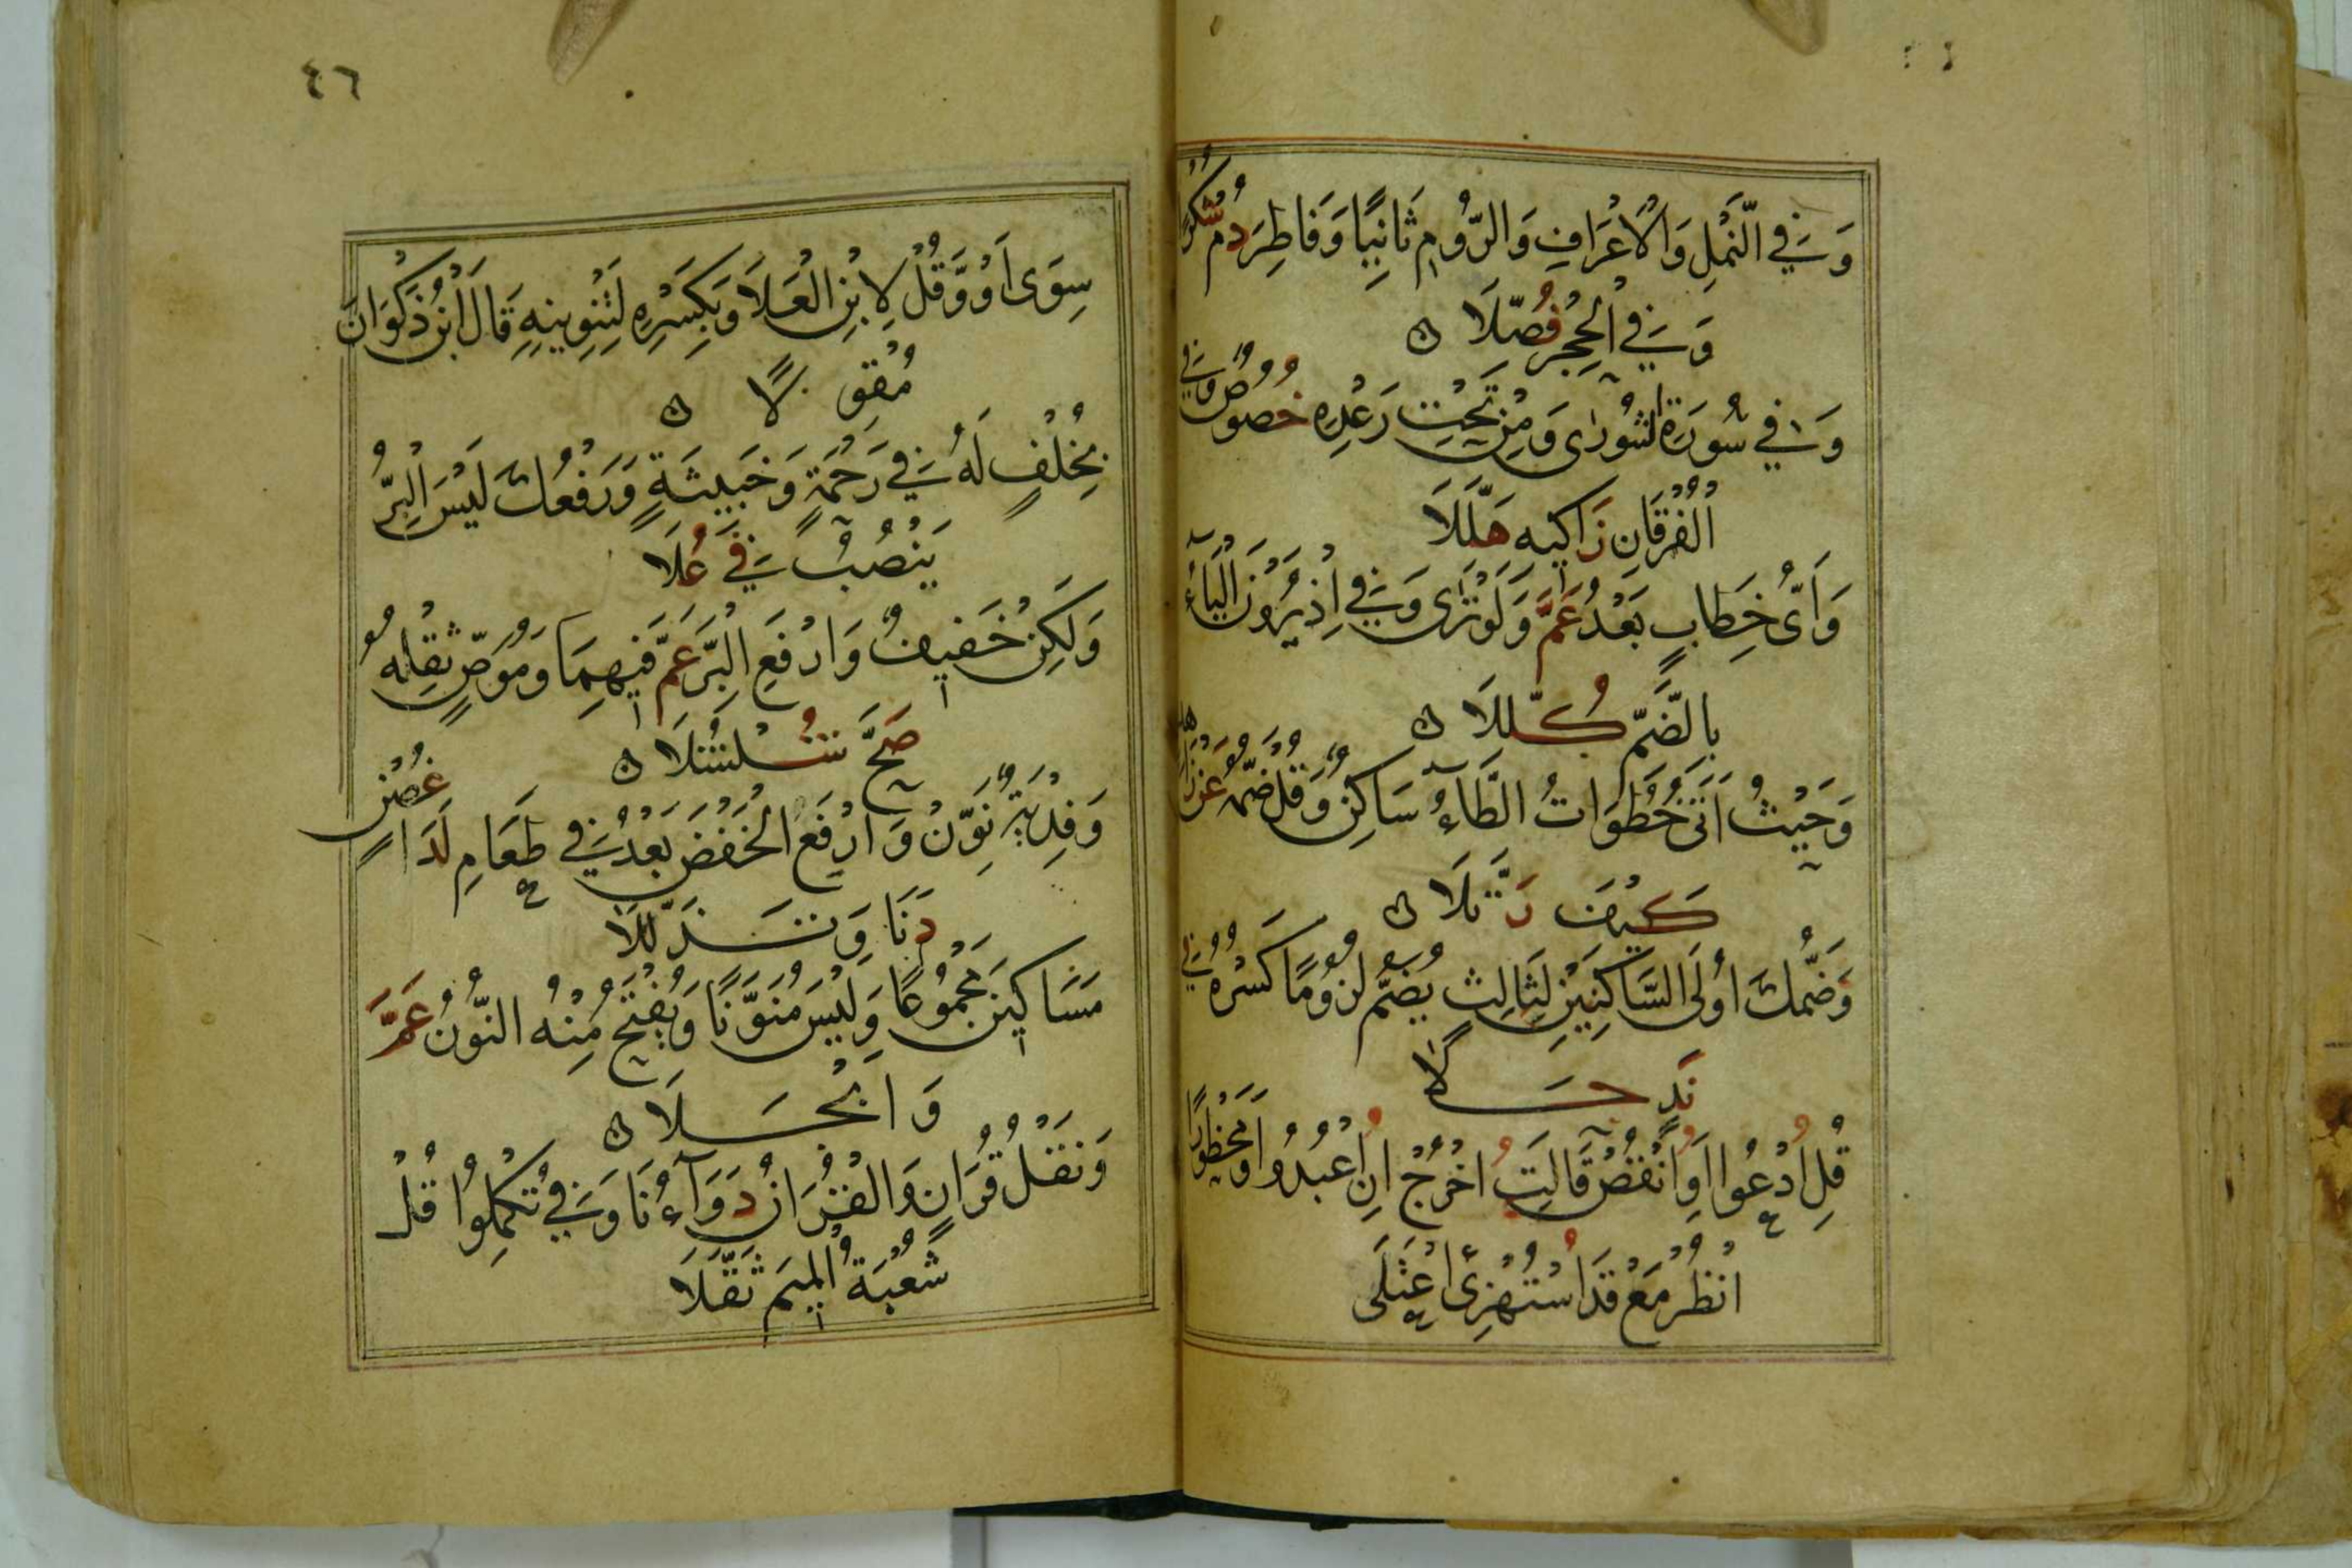 وَفِي النَّمْلِ وَالْاَعْرَافِ وَالرُّومِ ثَانِيًا وَفَاطِرَ دُمْ شُكْرًا
وَفِي الْحِجْرِ فُصِّلَا
وَفِي سُورَةِ الشُّورٰى وَمِنْ تَحْتِ رَعْدِهِ خُصُوصٌ وَفِي
الْفُرْقَانِ زَاكِيهِ هَلَّلَا
وَاَيُّ خِطَابٍ بَعْدُ عَمَّ وَلَوْ تَرٰى وَفِي اِذْ يَرَوْنَ الْيَاءُ
بِالضَّمِّ كُلِّلَا
وَحَيْثُ اَتَى خُطُوَاتُ الطَّاءُ سَاكِنٌ وَقُلْ ضَمُّهُ عَنْ زَاهِدٍ
كَيْفَ رَتَّلَا
وَضَمُّكَ اُولَى السَّاكِنَيْنِ لِثَالِثٍ يُضَمُّ لُزُومًا كَسْرُهُ فِي
نَدٍ حَلَا
قُلِ ادْعُوا اَوِ انْقُصْ قَالَتِ اخْرُجْ اَنِ اعْبُدُوا وَمَحْظُورًا
انْظُرْ مَعْ قَدِ اسْتُهْزِئَ اعْتَلَى
٤٦
سِوَى اَوْ وَقُلْ لِابْنِ الْعَلَا وَبِكَسْرِهِ لِتَنْوِينِهِ قَالَ ابْنُ ذَكْوَانَ
مُقْوِلًا
بِخُلْفٍ لَهُ فِي رَحْمَةٍ وَخَبِيثَةٍ وَرَفْعُكَ لَيْسَ الْبِرُّ
يَنْصُبُ فِي عُلَا
وَلَكِنْ خَفِيفٌ وَارْفَعِ الْبِرَّ عَمَّ فِيهِمَا وَمُوَصٍّ ثِقْلُهُ
صَحَّ شُلْشُلَا
وَفِدْيَةُ نَوِّنْ وَارْفَعِ الْخَفْضَ بَعْدُ فِي طَعَامِ لَدَا
غُصْنٍ
دَنَا وَتَذَلَّلَا
مَسَاكِينَ مَجْمُوعًا وَلَيْسَ مُنَوَّنًا وَيُفْتَحُ مِنْهُ النُّونُ عَمَّ
وَابْجَلَا
وَنَقْلُ قُرَانٍ وَالْقُرَانِ دَوَاءُنَا وَفِي تُكْمِلُوا قُلْ
شُعْبَةُ الْمِيمَ ثَقَّلَا